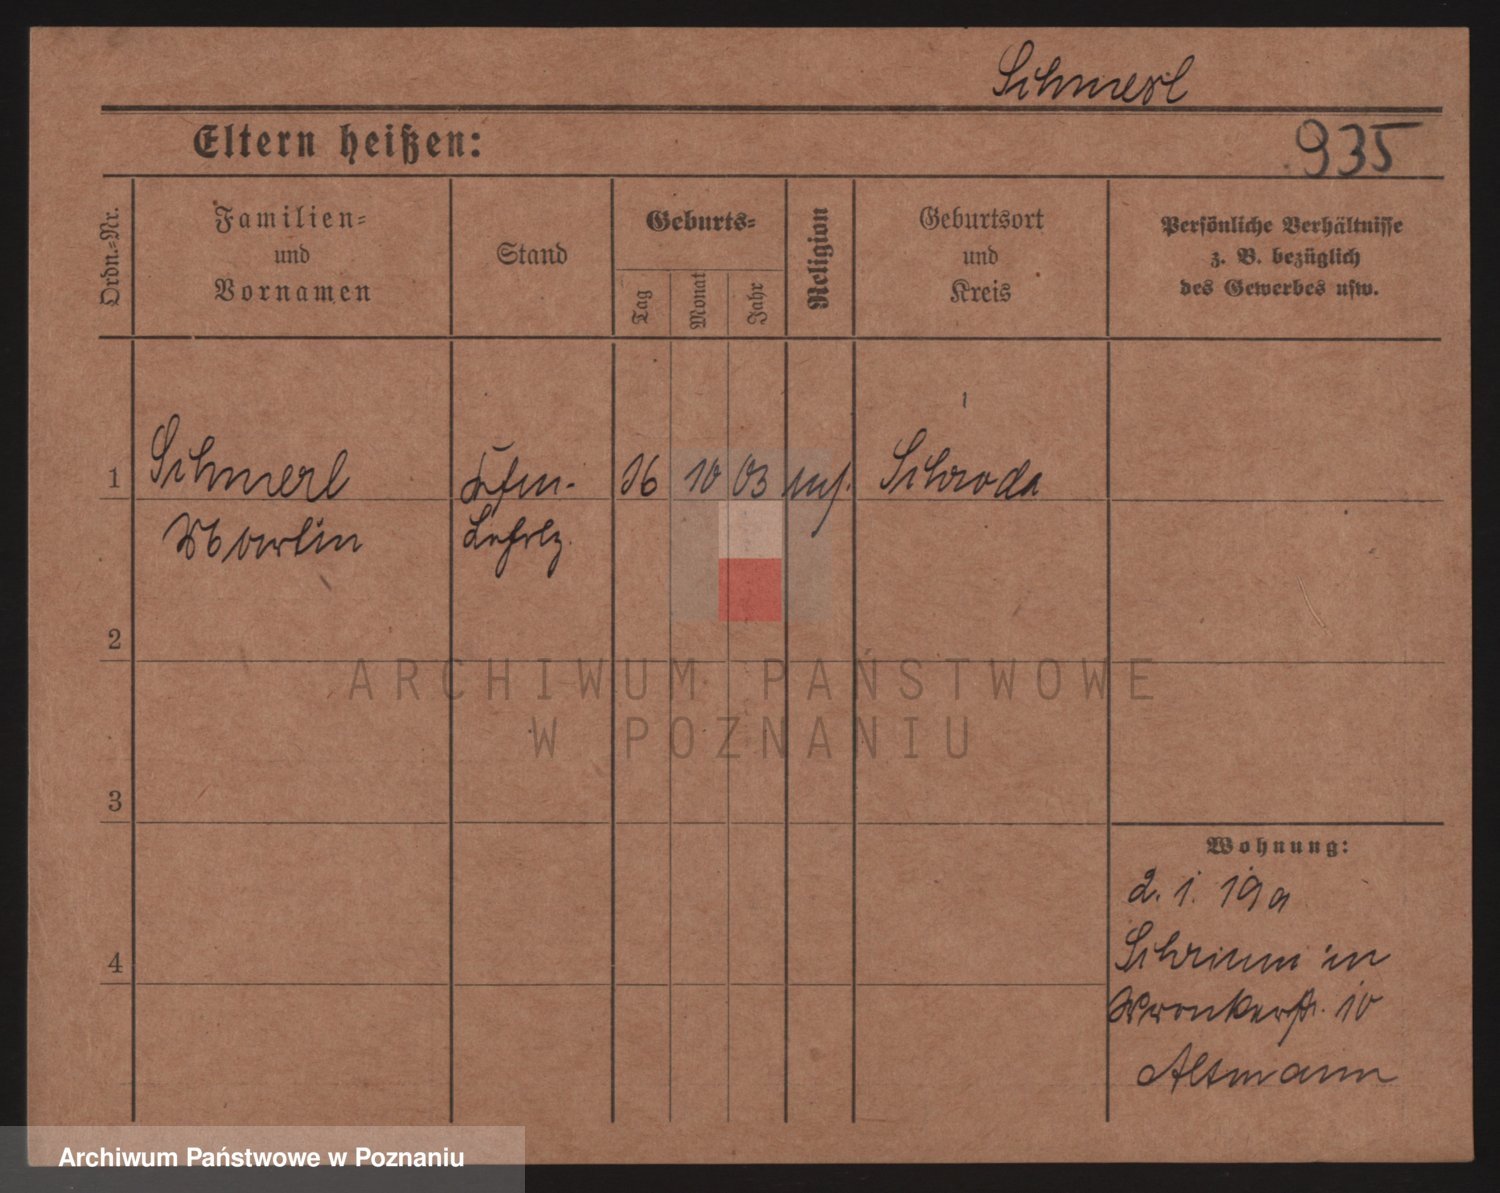 Schmerl
Eltern heißen:
935
Ordn.=Nr.
Familien=
und
Vornamen
Stand
Geburts=
Tag
Monat
Jahr
Religion
Geburtsort
und
Kreis
Persönliche Verhältnisse
z. B. bezüglich
des Gewerbes usw.
1
Schmerl
Kfm.
16
10
03
Schroda
Martin
Lehrlg.
2
ARCHIWUM PAŃSTWOWE
W POZNANIU
3
Wohnung:
2. 1. 19 a
Schrimm in
4
Wronkerstr. 10
Altmann
Archiwum Państwowe w Poznaniu